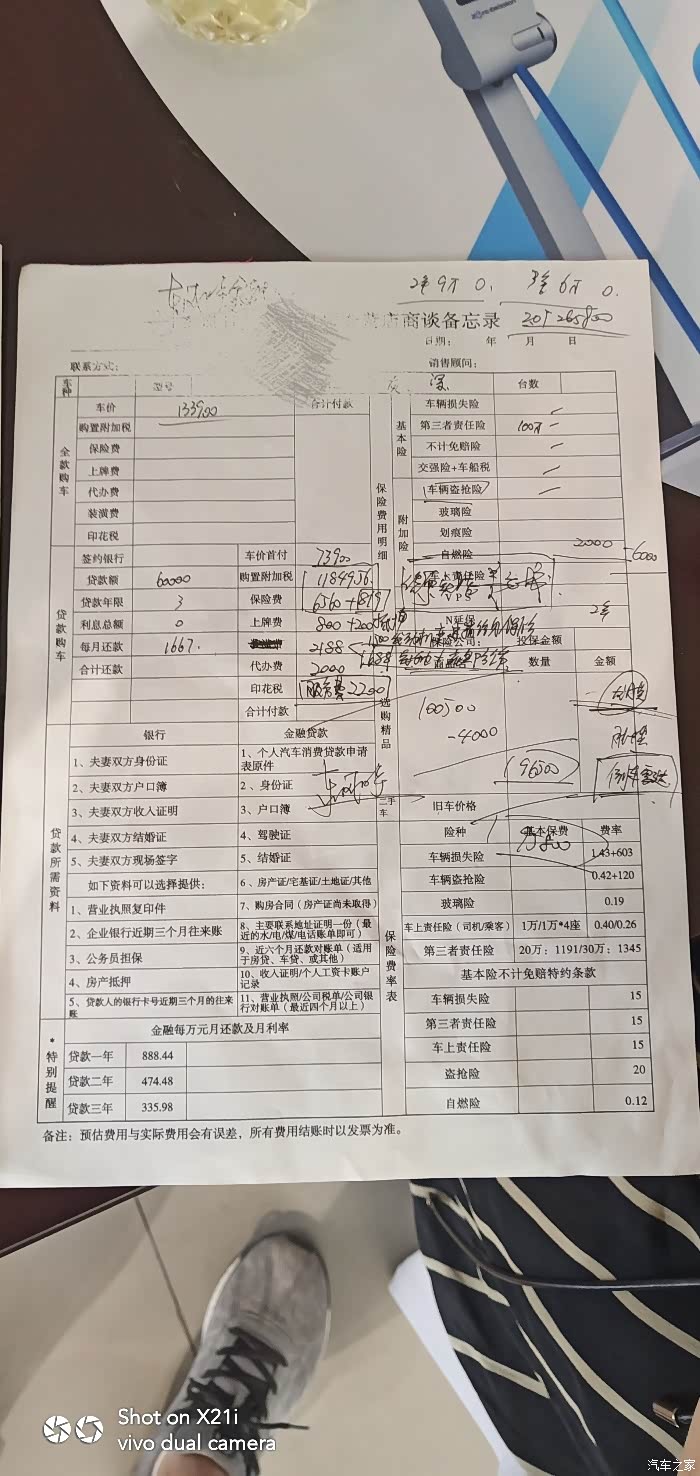 2年9万 0. 3年6万 0.
店商谈备忘录
日期: 年 月 日
联系方式: 销售顾问:
车种 型号 台数
全款购车
车价 133900 合计付款
购置附加税
保险费
上牌费
代办费
装潢费
印花税
保险费用明细
基本险
车辆损失险
第三者责任险 100万
不计免赔险
交强险+车船税
附加险
车辆盗抢险
玻璃险
划痕险
自燃险 2000 6000
车上责任险
贷款购车
签约银行 车价首付 73900
贷款额 60000 购置附加税 11849.56
贷款年限 3 保险费 6560+819
利息总额 0 上牌费 800+200
每月还款 1667. 2188
合计还款 代办费 2000
印花税 服务费2200
合计付款
延保 2年
保险公司: 投保金额
数量 金额
选购精品
100500
-4000
96500
二手车 旧车价格
贷款所需资料
银行 金融贷款
1、夫妻双方身份证 1、个人汽车消费贷款申请表原件
2、夫妻双方户口簿 2、身份证
3、夫妻双方收入证明 3、户口簿
4、夫妻双方结婚证 4、驾驶证
5、夫妻双方现场签字 5、结婚证
如下资料可以选择提供: 6、房产证/宅基证/土地证/其他
1、营业执照复印件 7、购房合同(房产证尚未取得)
2、企业银行近期三个月往来账 8、主要联系地址证明一份(最近的水/电/煤/电话账单即可)
3、公务员担保 9、近六个月还款对账单(适用于房贷、车贷、或其他)
4、房产抵押 10、收入证明/个人工资卡账户记录
5、贷款人的银行卡号近期三个月的往来账 11、营业执照/公司税单/公司银行对账单(最近四个月以上)
保险费率表
险种 基本保费 费率
车辆损失险 1.43+603
车辆盗抢险 0.42+120
玻璃险 0.19
车上责任险(司机/乘客) 1万/1万*4座 0.40/0.26
第三者责任险 20万:1191/30万:1345
基本险不计免赔特约条款
车辆损失险 15
第三者责任险 15
车上责任险 15
盗抢险 20
自燃险 0.12
*特别提醒
金融每万元月还款及月利率
贷款一年 888.44
贷款二年 474.48
贷款三年 335.98
备注:预估费用与实际费用会有误差,所有费用结账时以发票为准。
Shot on X21i
vivo dual camera
汽车之家